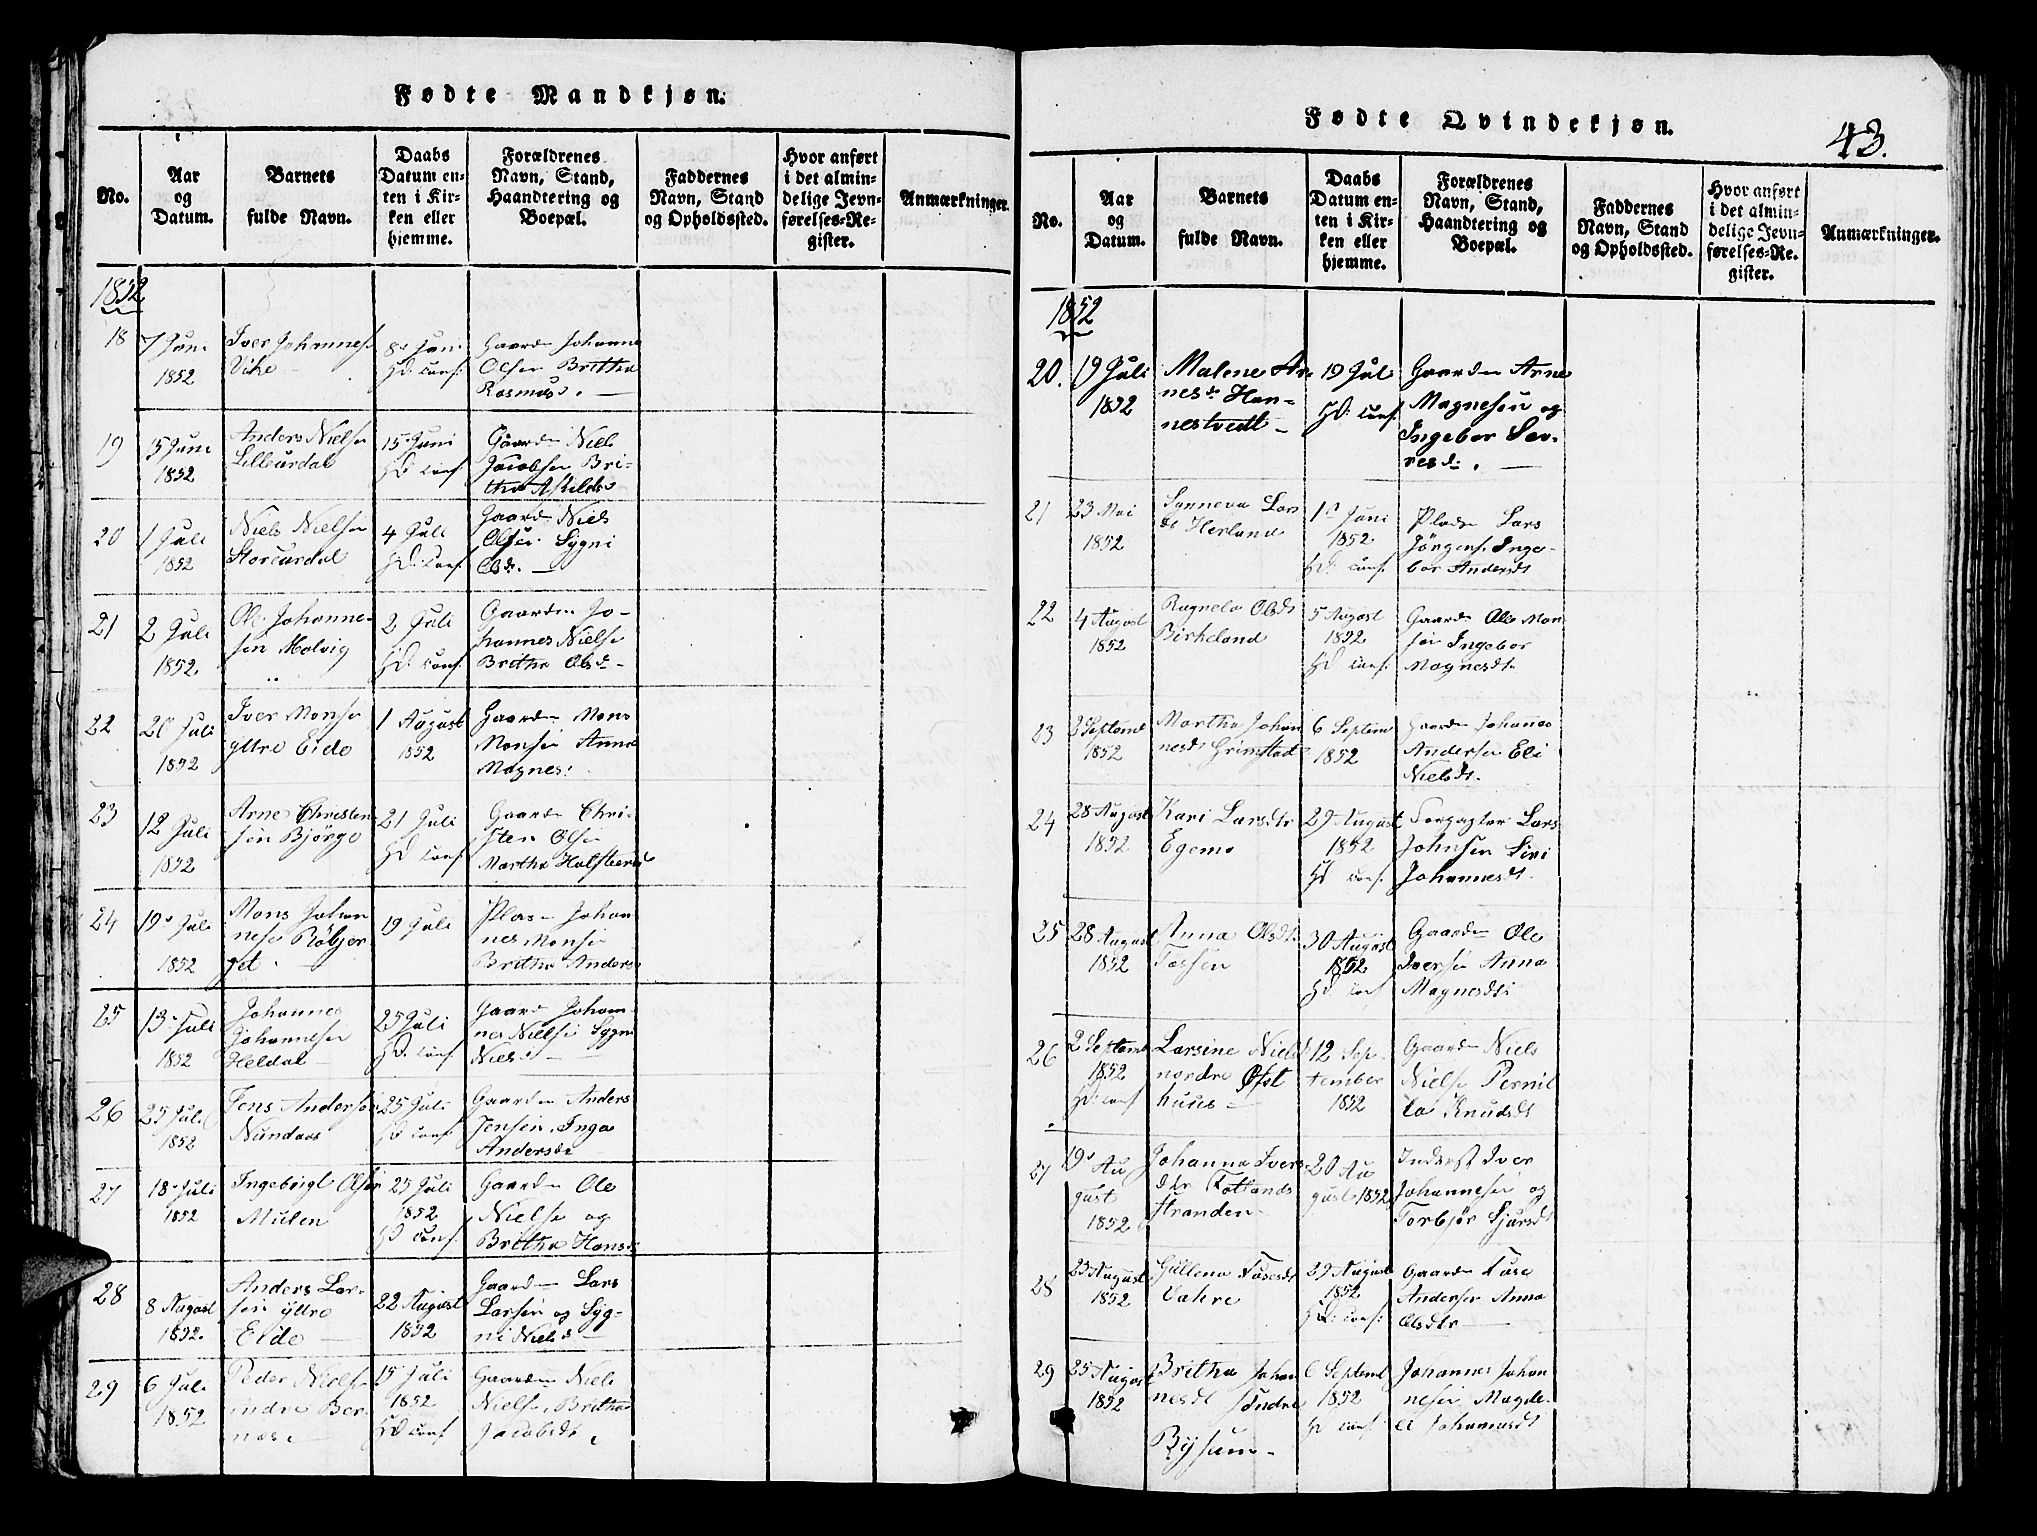 Fødte Mandkjøn.
No.
Aar
og
Datum.
Barnets
fulde Navn.
Daabs
Datum en-
ten i Kir-
ken eller
hjemme.
Forældrenes
Navn, Stand,
Haandtering og
Boepæl.
Faddernes
Navn, Stand
og Opholdssted.
Hvor anført
i det almin-
delige Jevn-
førelses-Re-
gister.
Anmærkninger.
1852
18
7 Juni
1852
Iver Johannes
Vike
8 Juni
HD. conf.
Gaard Johanne
Olsen Britha
Rasmusd.
19
5 Juni
1852
Anders Nielse
Lilleurdal
15 Juni
HD conf
Gaard Niels
Jacobsen Bri-
tha Askilds
20
1 Juli
1852
Niels Nielse
Storeurdal
4 Juli
HD. conf.
Gaard Niels
Olsen Sygni
Olsd.
21
2 Juli
1852.
Ole Johanne-
sen Molvig
2 Juli
HD. conf.
Gaard Jo-
hannes Nielse
Britha Olsd
22
20 Juli
1852
Iver Monse
yttre Eide
1 August
1852
Gaard Mons
Monsen Anna
Magnes
23
12 Juli
1852
Arne Christen
sen Björge
21 Juli
HD conf.
Gaard Chri-
sten Olse
Martha
24
19 Juli
1852
Mons Johan
nese
19 Juli
Plds Johan
nes Monse
Britha Anders
25
13 Juli
1852
Johannes
Johannesen
Heldal
25 Juli
HD. conf.
Gaard Johan
nes Nielse Sygni
Niels
26
25 Juli
1852
Jens Anderse
Nundaas
25 Juli
HD conf.
Gaard Anders
Jensen. Inga
Andersd
27
18 Juli
1852
Ingebrigt Olsen
Mulen
25 Juli
1852
HD conf
Gaard Ole
Nielse og
Britha Hans
28
8 August
1852.
Anders Lar-
sen yttre
Eide
22 August
1852
Gaard Lars
Larsen og Syg-
ni Nielsd
29
6 Juli
1852
Peder Niels
indre Ber-
nes
15 Juli
1852
HD conf
Gaard Niels
Nielse, Britha
Jacobsdt
Fødte Qvindekjøn.
43.
No.
Aar
og
Datum.
Barnets
fulde Navn.
Daabs
Datum en-
ten i Kir-
ken eller
hjemme.
Forældrenes
Navn, Stand,
Haandtering og
Boepæl.
Faddernes
Navn, Stand
og Opholdssted.
Hvor anført
i det almin-
delige Jevn-
førelses-Re-
gister.
Anmærkninger.
1852
20.
19 Juli
1852
Malene Ar
nesd. Han-
nestvedt
19 Jul
HD. conf.
Gaard Arne
Magnesen og
Ingebor Sev-
resd.
21
23 Mai
1852
Synneva Lars
dt Herland
1 Juni
1852
HD. conf.
Plds Lars
Jörgens. Inge-
bor Andersdt
22
4 August
1852
Ragnela Olsdt
Birkeland
5 August
1852
HD conf.
Gaard Ole Mon
sen Ingebor
Magnesdt
23
3 Septemb
1852
Martha Johan
nesdt Grimstad
6 Septem
1852
Gaard Johannes
Andersen Eli
Nielsdt.
24
28 August
1852
Kari Larsdtr
Egemo
29 August
1852
HD conf.
Forpagter Lars
Johnsen Siri
Johannesdt.
25
28 August
1852
Anna Olsdt.
Tossen
30 August
1852
HD. conf
Gaard Ole
Iverse Anna
Magnesdt
26
2 Septemb
1852
HD. conf
Larsine Nielsd
nordre Öfst
huus
12 Sep-
tember
1852
Gaard Niels
Nielse Pernil
la Knudsdt
27
19 Au
gust
1852
Johanna Ivers
dtr Totlands
stranden
20 Au
gust 1852
Inderst Iver
Johannesen og
Torbjör Sjursdt
28
23 August
1852
Gullena Tosesdt
Vahre
29 August
1852
HD. conf:
Gaard Tose
Anderse Anna
Olsdtr
29
25 August
1852
Britha Johan
nesdt Söndre
Bysum
6 Septemb
1852
HD conf
Johannes Johan
nesen Magde-
li Johannesdt